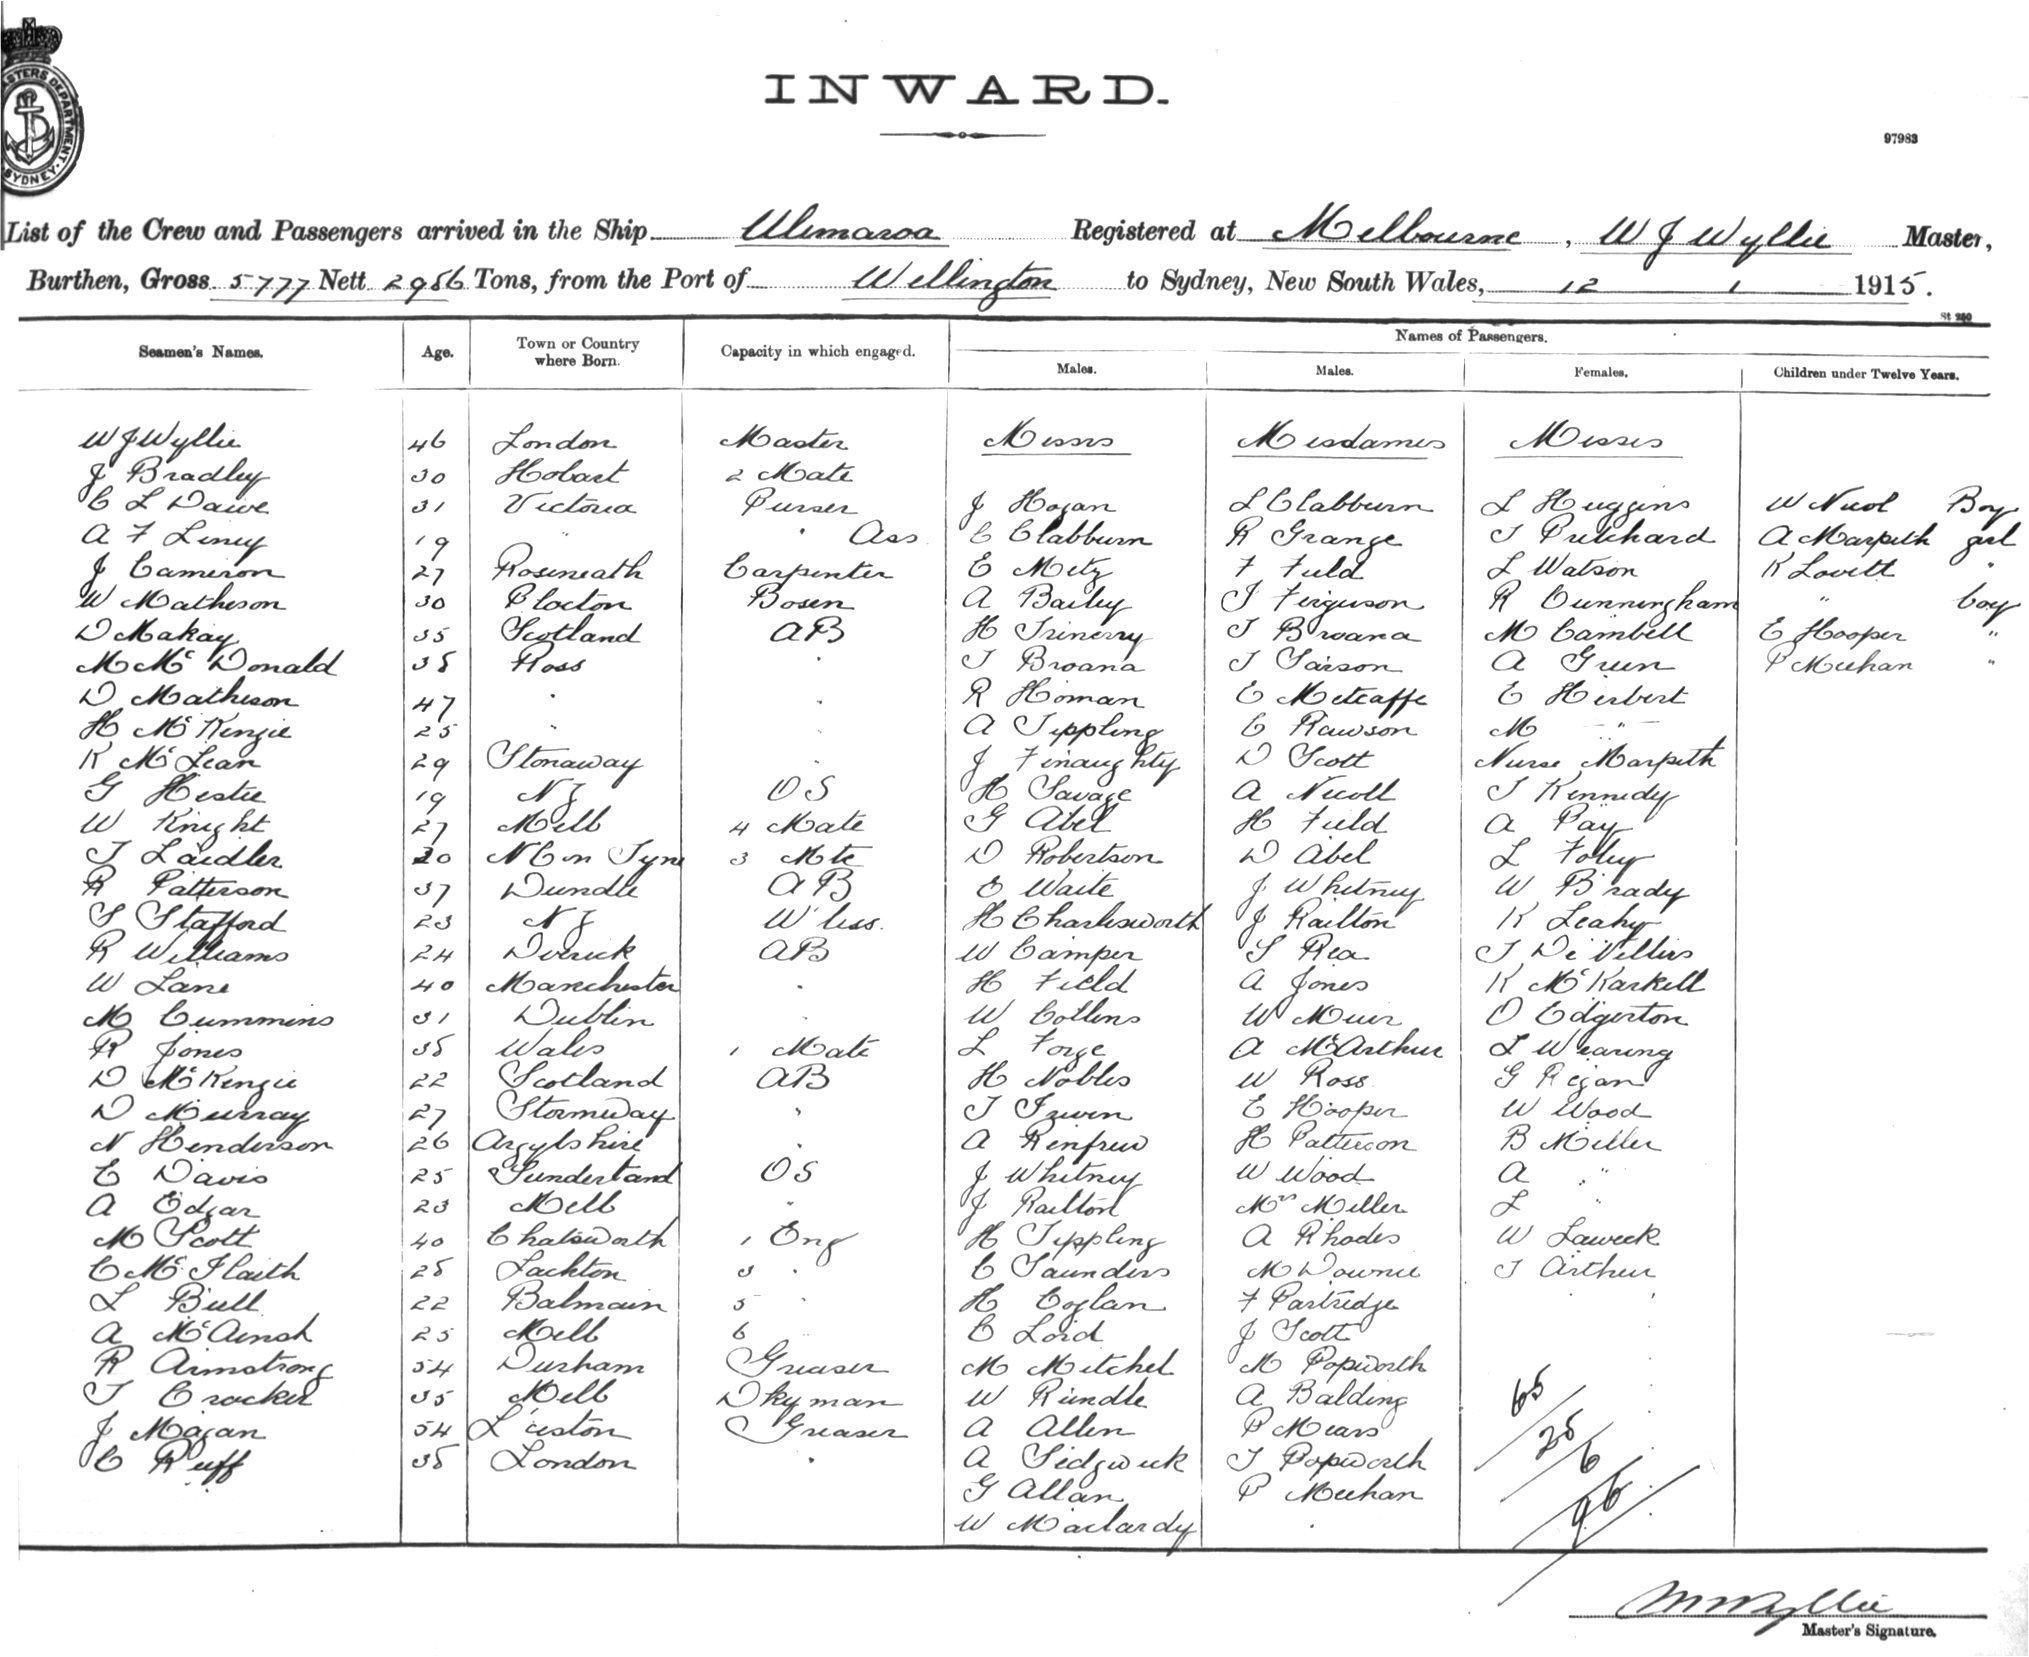 MASTERS DEPARTMENT. SYDNEY.
INWARD.
97983
List of the Crew and Passengers arrived in the Ship Ulimaroa Registered at Melbourne, W J Wyllie Master,
Burthen, Gross 5777 Nett 2986 Tons, from the Port of Wellington to Sydney, New South Wales, 12 1 1915.
St 250
Names of Passengers.
Seamen's Names. Age. Town or Country where Born. Capacity in which engaged. Males. Males. Females. Children under Twelve Years.
W J Wyllie 46 London Master Messrs Mesdames Misses
J Bradley 30 Hobart 2 Mate
C L Dawe 31 Victoria Purser J Hogan L Clabburn L Huggins W Nicol Boy
A F Liney 19 " " Ass C Clabburn R Grange J Pritchard A Marpeth girl
J Cameron 27 Roseneath Carpenter E Metz F Field L Watson K Lovett "
W Matheson 30 Plocton Bosen A Bailey J Ferguson R Cunningham " boy
D Makay 35 Scotland AB H Trinerry J Broana M Cambell E Hooper "
M McDonald 38 Ross " J Broana J Sarson A Green P Meehan "
D Matheson 47 " " R Homan E Metcaffe E Herbert
H McKenzie 25 " " A Tippling C Rawson M "
K McLean 29 Stonaway " J Finaughty D Scott Nurse Marpeth
G Hestie 19 NZ OS H Savage A Nicoll J Kennedy
W Knight 27 Melb 4 Mate G Abel H Field A Pay
T Laidler 30 N C on Tyne 3 Mte D Robertson D Abel L Foley
R Patterson 37 Dundee AB E Waite J Whitney W Brady
S Stafford 23 NZ W'less. H Charlesworth J Railton K Leahy
R Williams 24 AB W Camper S Rea J De Villiers
W Lane 40 Manchester " H Field A Jones K McKaskell
M Cummins 31 Dublin " W Collins W Muir O Edgerton
R Jones 38 Wales 1 Mate L Forge A McArthur L Wearing
D McKenzie 22 Scotland AB H Nobles W Ross G Regan
D Murray 27 Stornway " T Irwin E Hooper W Wood
N Henderson 26 Argylshire " A Renfrew H Patterson B Miller
E Davis 25 Sunderland OS J Whitney W Wood A "
A Edgar 23 Melb " J Railton Mrs Miller L "
M Scott 40 Chatsworth 1 Eng H Tippling A Rhodes W Laweek
C McIlaith 28 Lackton 3 " C Saunders M Downie J Arthur
L Bull 22 Balmain 5 " H Coglan F Partridge
A McAinsh 25 Melb 6 C Lord J Scott
R Armstrong 54 Durham Greaser M Mitchel M Popworth
T Crocker 35 Melb Dkyman W Rundle A Balding 65
J Magan 54 L'ceston Greaser A Allen P Mears 25
C Ruff 38 London " A Sidgwick J Popworth 6
G Allan P Meehan 96
W Maclardy
W J Wyllie
Master's Signature.